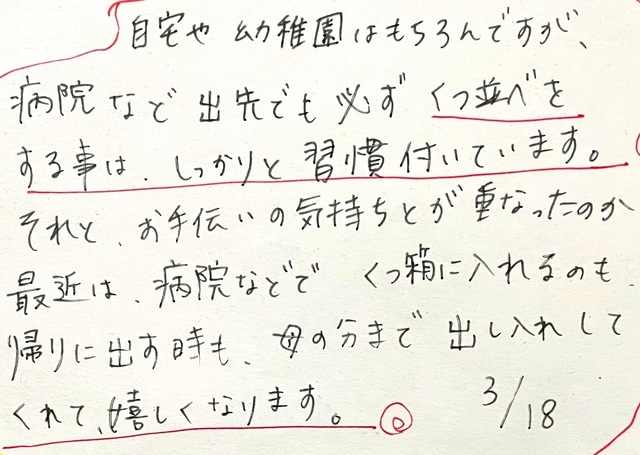 自宅や幼稚園はもちろんですが、
病院など出先でも必ずくつ並べを
する事は、しっかりと習慣付いています。
それと、お手伝いの気持ちとが重なったのか
最近は、病院などで くつ箱に入れるのも、
帰りに出す時も、母の分まで出し入れして
くれて、嬉しくなります。
3/18